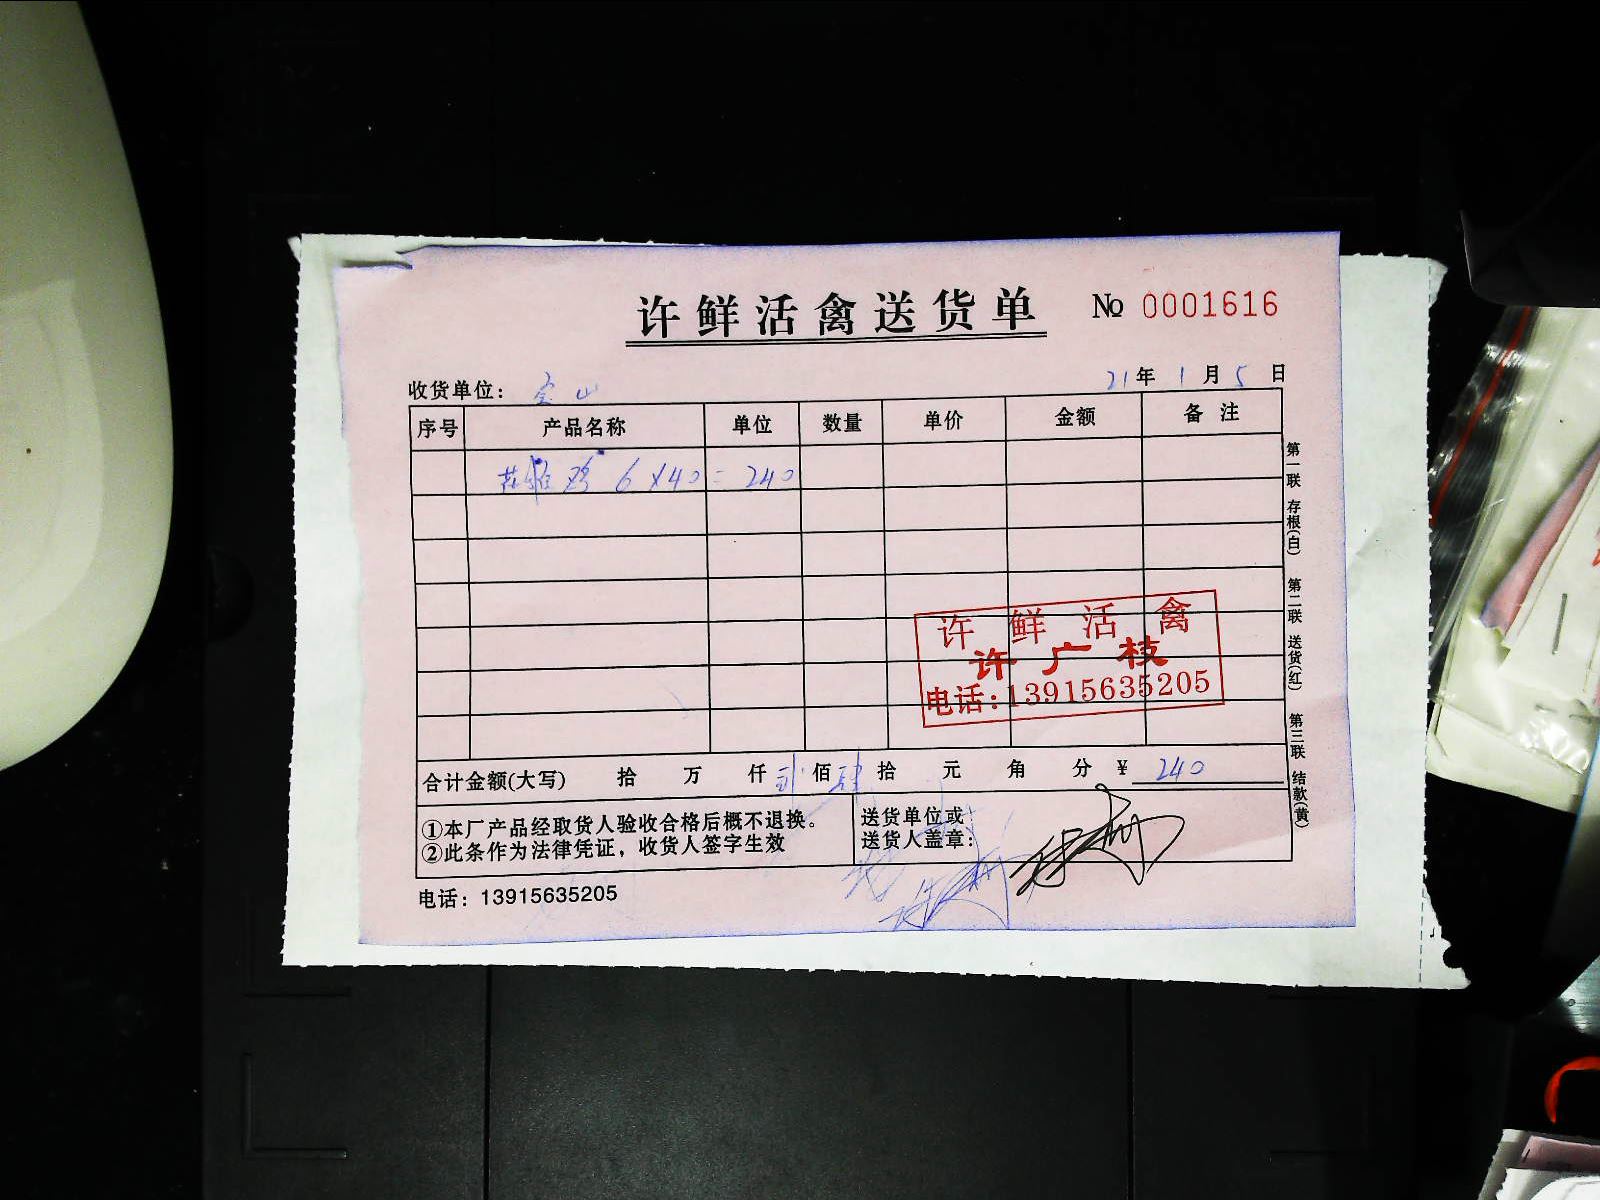 许鲜活禽送货单 № 0001616
收货单位： 宝山 21年 1月 5日
序号 产品名称 单位 数量 单价 金额 备注
鸡 6×40=240
许鲜活禽
许广枝
电话:13915635205
合计金额(大写) 拾 万 仟 贰佰 肆拾 元 角 分 ¥ 240
①本厂产品经取货人验收合格后概不退换。
②此条作为法律凭证，收货人签字生效
送货单位或
送货人盖章：
电话：13915635205
第一联 存根(白) 第二联 送货(红) 第三联 结款(黄)